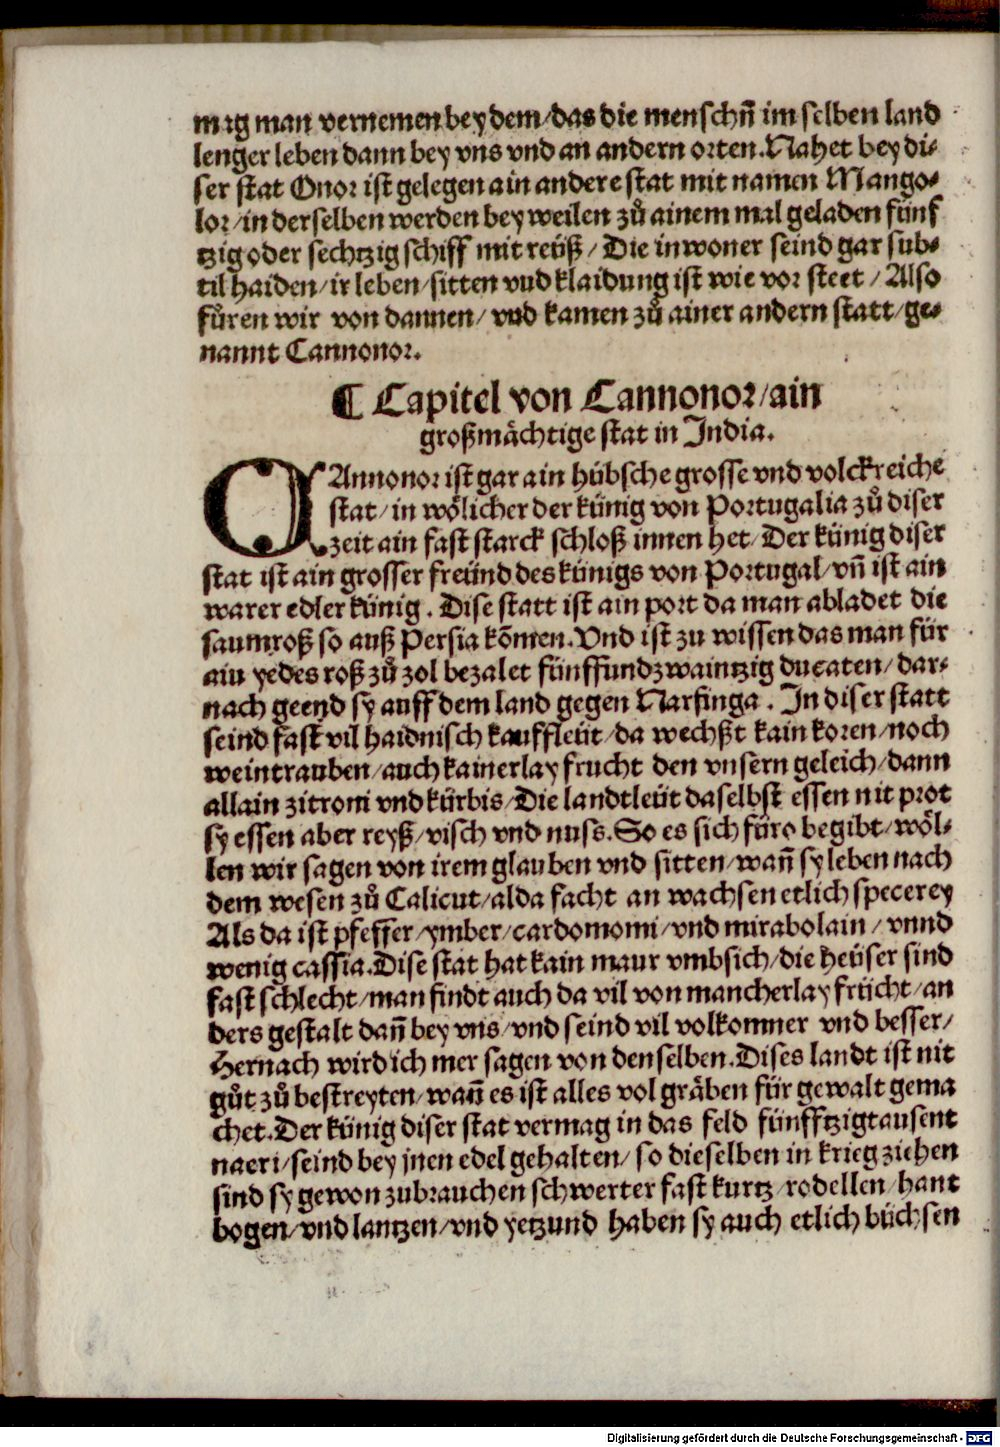 mag man vernemen bey dem/das die menschn̄ im selben land
lenger leben dann bey vns vnd an andern orten. Nahet bey di⸗
ser stat Onor ist gelegen ain andere stat mit namen Mango⸗
lor/in derselben werden bey weilen zů ainem mal geladen fünf
tzig oder sechtzig schiff mit reüß/ Die inwoner seind gar sub⸗
til haiden/ir leben/sitten vnd klaidung ist wie vor steet/Also
fůren wir von dannen/ vnd kamen zů ainer andern statt/ge⸗
nannt Cannonor.
¶ Capitel von Cannonor/ain
großmächtige stat in India.
CAnnonor ist gar ain hübsche grosse vnd volckreiche
stat/in wölicher der künig von Portugalia zů diser
zeit ain fast starck schloß innen het/Der künig diser
stat ist ain grosser freünd des künigs von Portugal/vn̄ ist ain
warer edler künig. Dise statt ist ain port da man abladet die
saumroß so auß Persia kōmen. Vnd ist zu wissen das man für
ain yedes roß zů zol bezalet fünffundzwaintzig ducaten/dar⸗
nach geend sy auff dem land gegen Narsinga. In diser statt
seind fast vil haidnisch kauffleüt/da wechßt kain koren/noch
weintrauben/auch kainerlay frucht den vnsern geleich/dann
allain zitroni vnd kürbis/Die landtleüt daselbst essen nit prot
sy essen aber reyß/visch vnd nuss. So es sich füro begibt/wöl⸗
len wir sagen von irem glauben vnd sitten/wan̄ sy leben nach
dem wesen zů Calicut/alda facht an wachsen etlich specerey
Als da ist pfeffer/ymber/cardomomi/vnd mirabolain/vnnd
wenig cassia. Dise stat hat kain maur vmb sich/die heüser sind
fast schlecht/man findt auch da vil von mancherlay frücht/an
ders gestalt dan̄ bey vns/vnd seind vil volkomner vnd besser/
Hernach wird ich mer sagen von denselben. Dises landt ist nit
gůt zů bestreyten/wan̄ es ist alles vol gräben für gewalt gema
chet. Der künig diser stat vermag in das feld fünfftzigtausent
naeri/seind bey jnen edel gehalten/so dieselben in krieg ziehen
sind sy gewon zubrauchen schwerter fast kurtz/rodellen/hant
bogen/vnd lantzen/vnd yetzund haben sy auch etlich büchsen
Digitalisierung gefördert durch die Deutsche Forschungsgemeinschaft - DFG